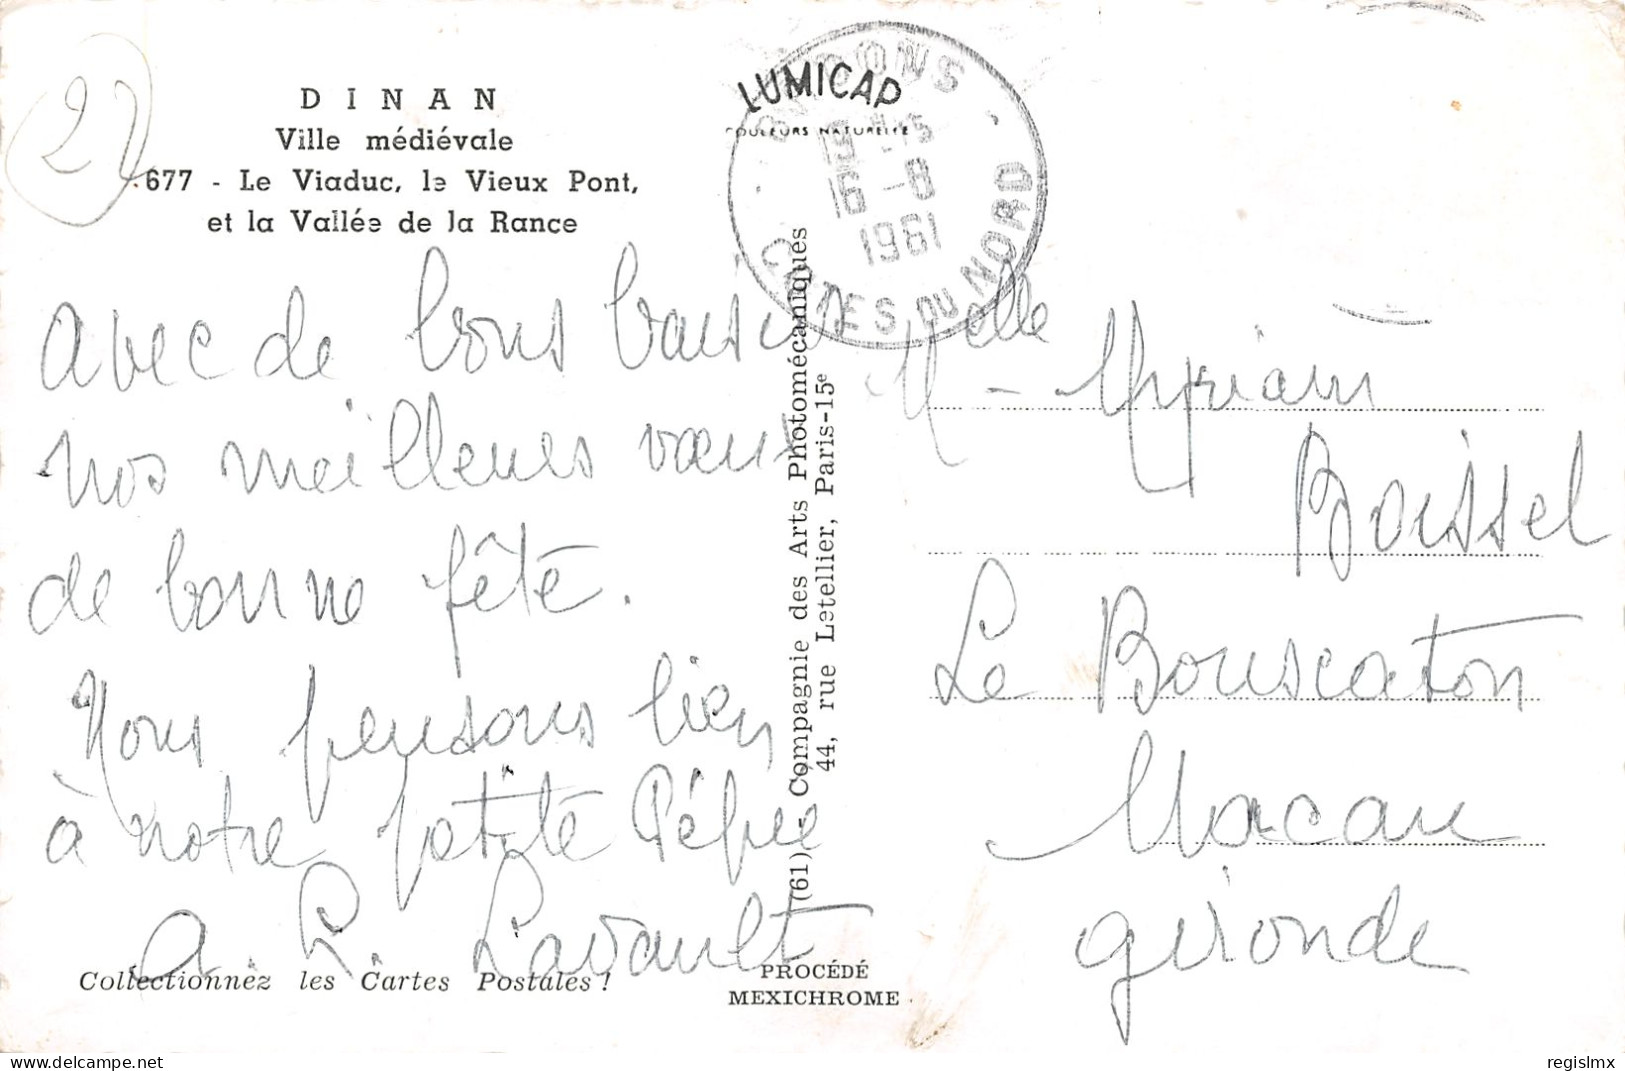 22
D I N A N
Ville médiévale
677 - Le Viaduc, le Vieux Pont,
et la Vallée de la Rance
LUMICAP
COULEURS NATURELLES
16 -8
1961
COTES DU NORD
avec de bons baisers
nos meilleurs vœux
de bonne fête.
Nous pensons bien
à notre petite Pépée
A. R. Lavault
Collectionnez les Cartes Postales !
(61) - Compagnie des Arts Photomécaniques
44, rue Letellier, Paris-15e
PROCÉDÉ
MEXICHROME
Melle - Myriam
Boissel
Le Bouscaton
Macau
gironde
regislmx